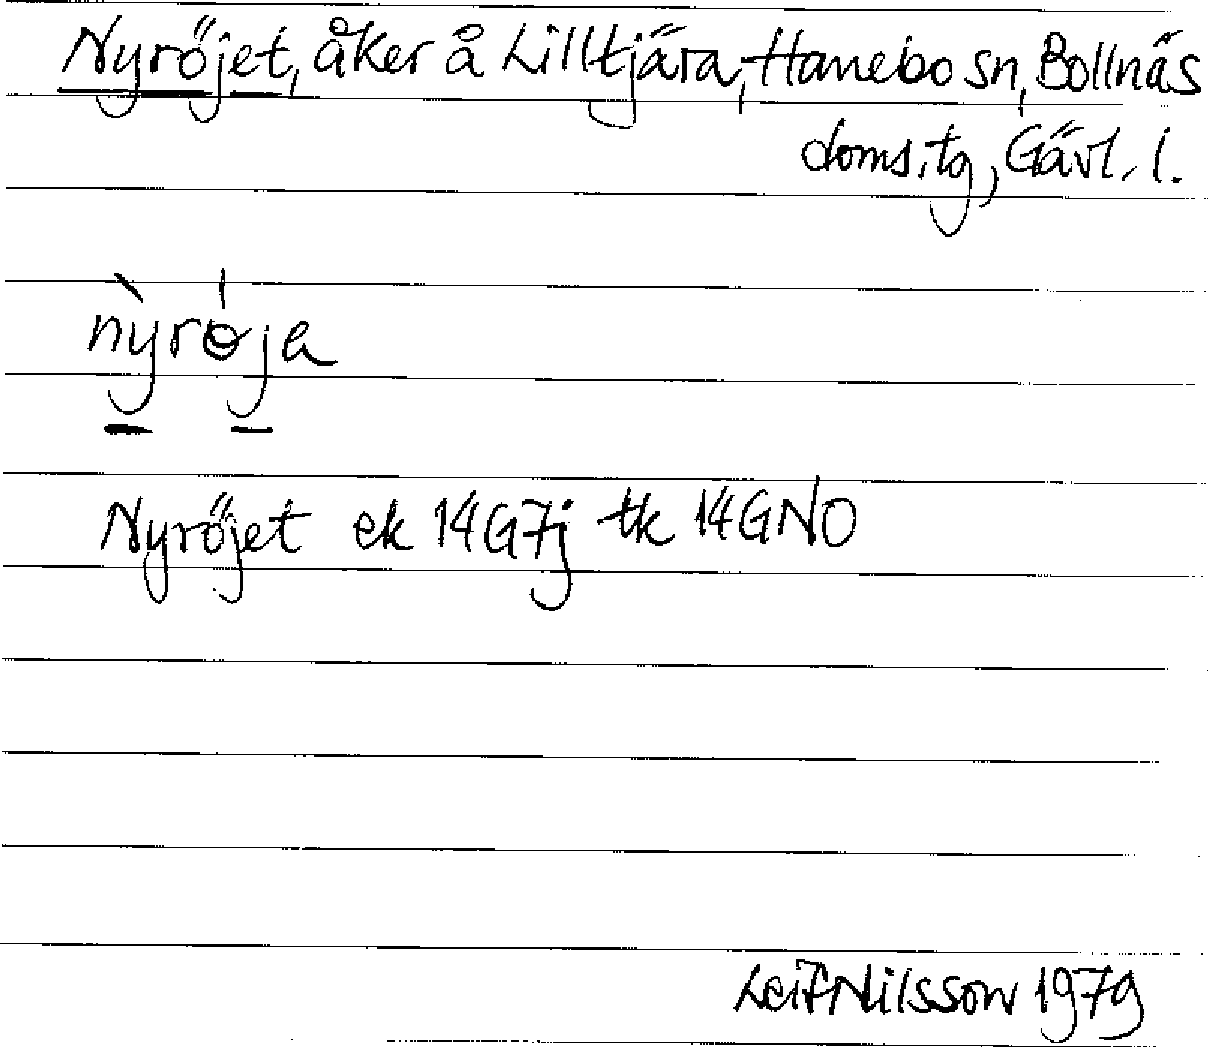 Nyröjet, åker å Lilltjära, Hanebo sn, Bollnäs
doms.tg, Gävl. l.
nỳrøja
Nyröjet ek 14G7j tk 14GNO
Leif Nilsson 1979